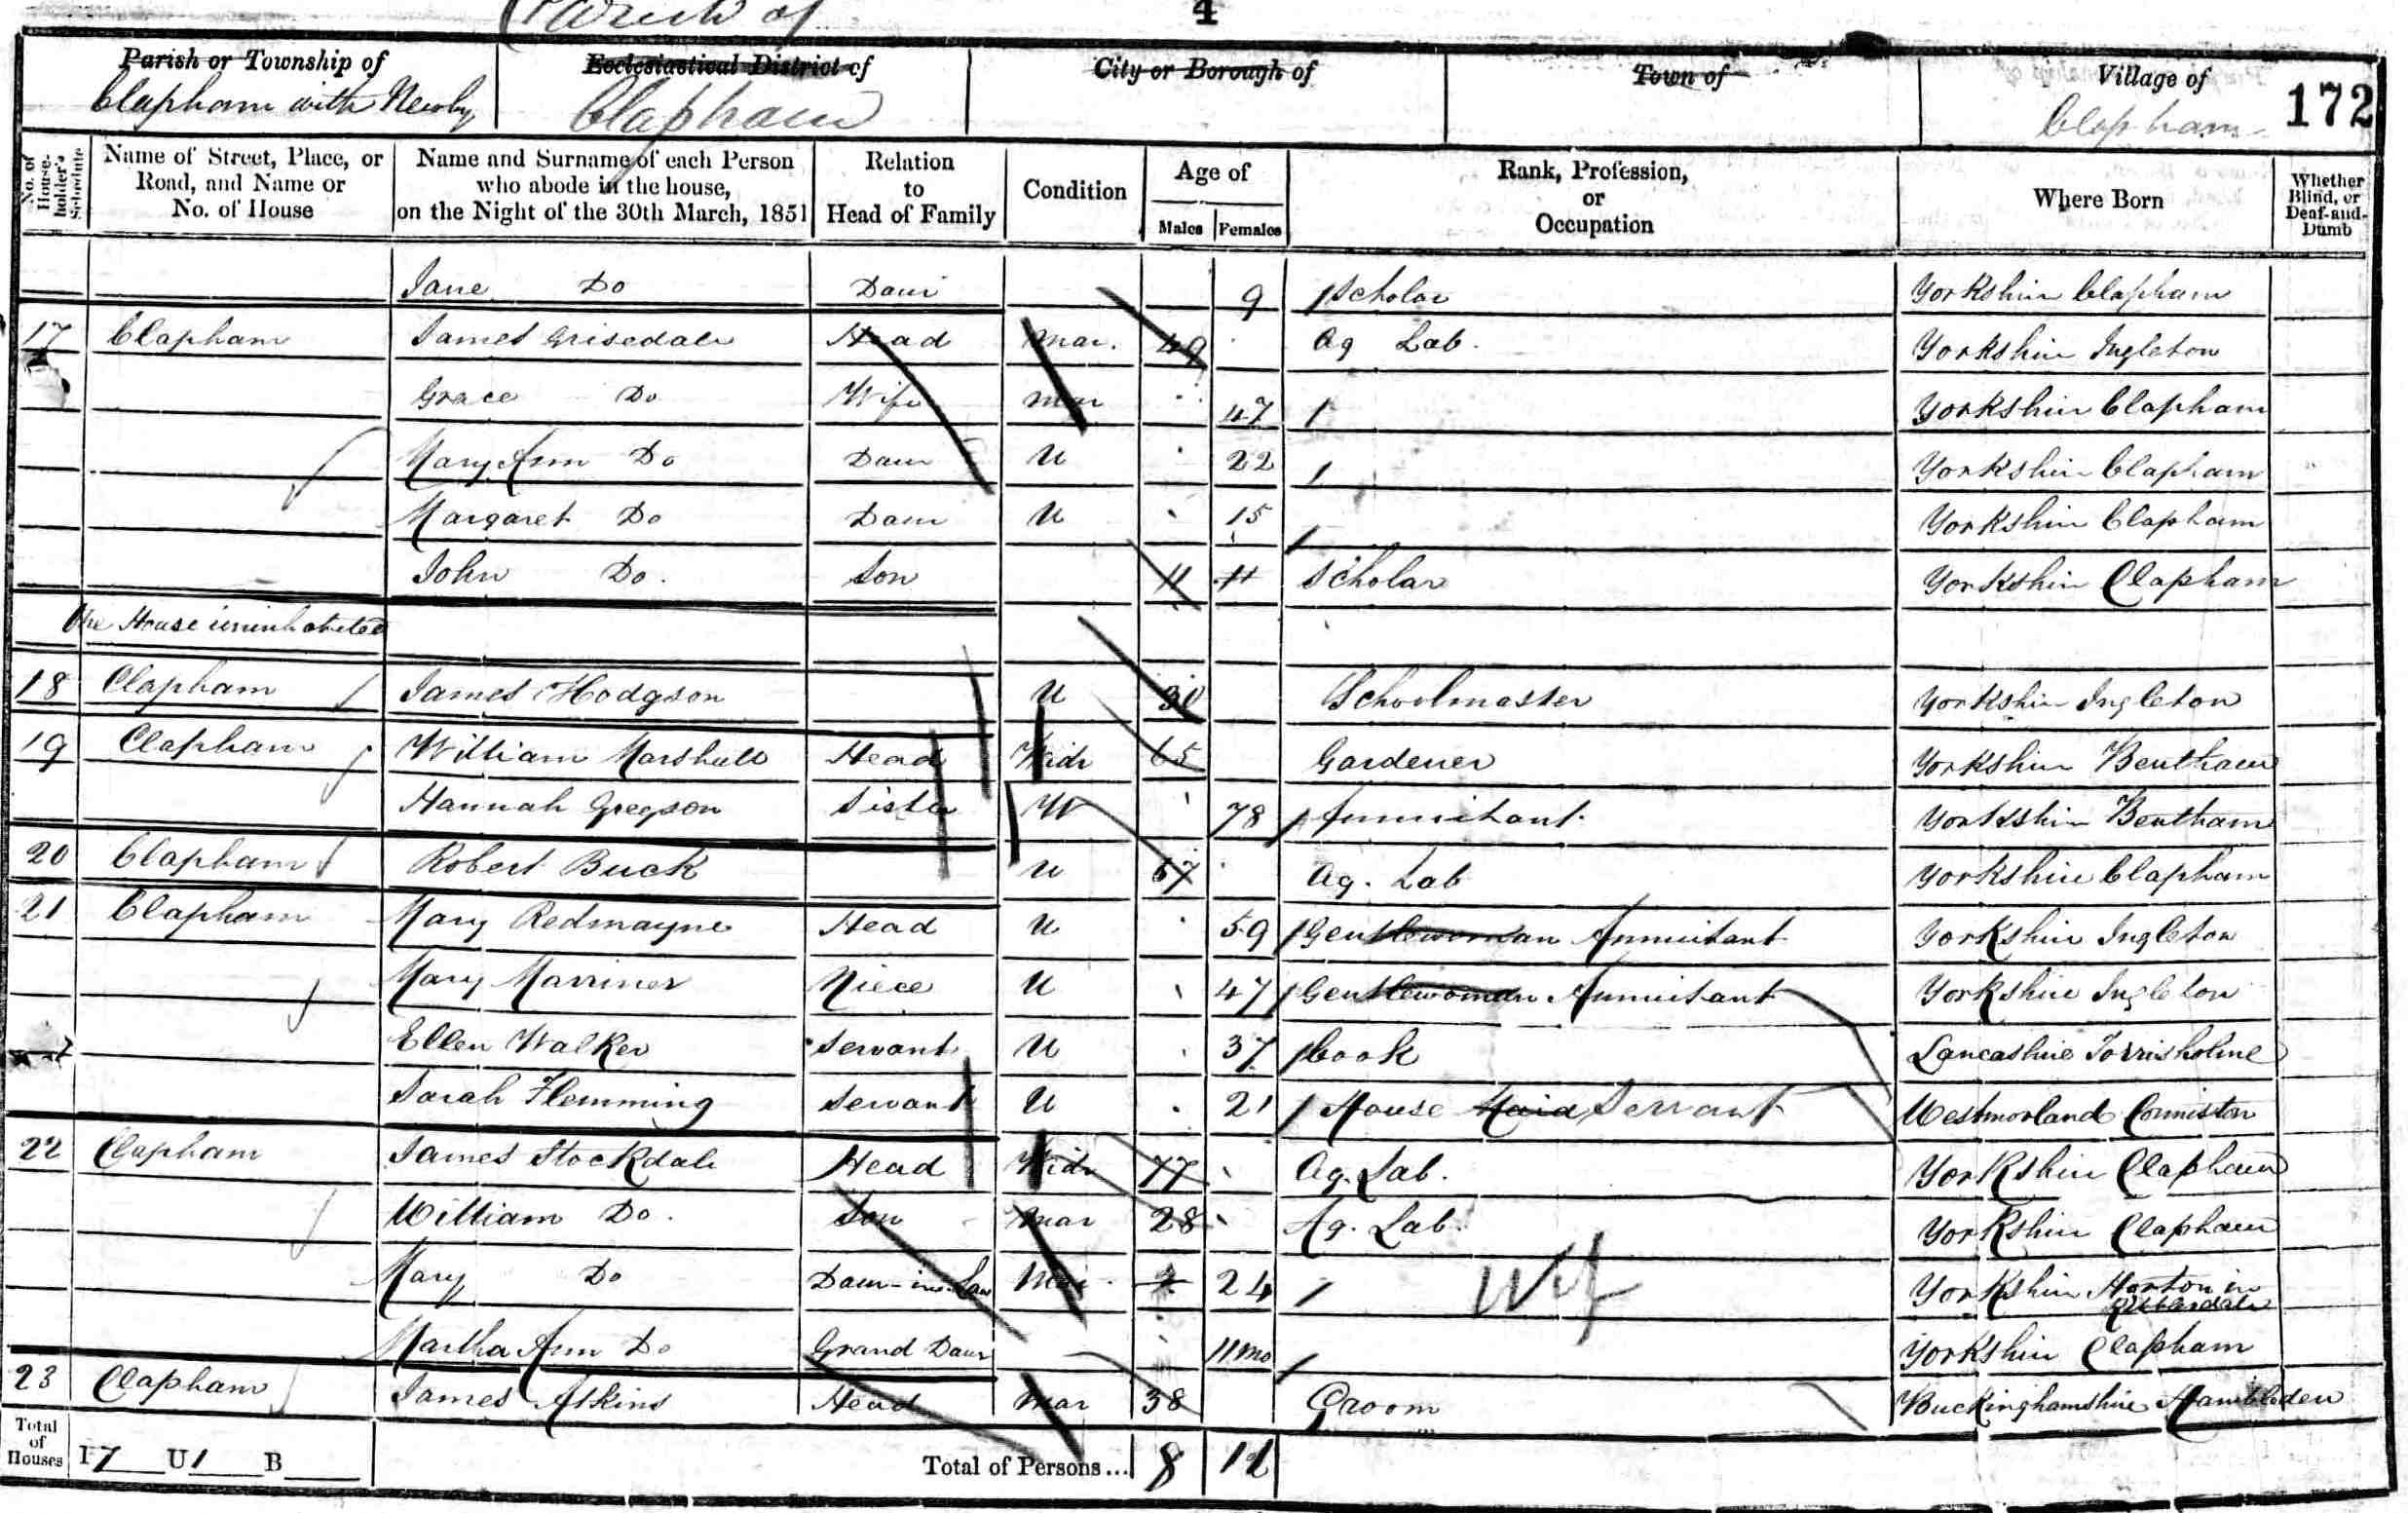 Parish of
4
Parish or Township of Ecclesiastical District of City or Borough of Town of Village of
Clapham with Newby Clapham Clapham 172
No. of House-holder's Schedule Name of Street, Place, or Road, and Name or No. of House Name and Surname of each Person who abode in the house, on the Night of the 30th March, 1851 Relation to Head of Family Condition Age of Males Females Rank, Profession, or Occupation Where Born Whether Blind, or Deaf-and-Dumb
Jane Do Daur 9 Scholar Yorkshire Clapham
17 Clapham James Grisedale Head Mar. 49 Ag Lab. Yorkshire Ingleton
Grace Do Wife Mar 47 Yorkshire Clapham
Mary Ann Do Daur U 22 Yorkshire Clapham
Margaret Do Daur U 15 Yorkshire Clapham
John Do. Son 11 11 Scholar Yorkshire Clapham
One House uninhabited
18 Clapham James Hodgson U 30 Schoolmaster Yorkshire Ingleton
19 Clapham William Marshall Head Widr 65 Gardener Yorkshire Bentham
Hannah Gregson Sister W 78 Annuitant. Yorkshire Bentham
20 Clapham Robert Buck U 67 Ag. Lab Yorkshire Clapham
21 Clapham Mary Redmayne Head U 59 Gentlewoman Annuitant Yorkshire Ingleton
Mary Marriner Niece U 47 Gentlewoman Annuitant Yorkshire Ingleton
Ellen Walker Servant U 37 Cook Lancashire Torrisholme
Sarah Flemming Servant U 21 House Maid Servant Westmorland Conniston
22 Clapham James Stockdale Head Widr 77 Ag. Lab. Yorkshire Clapham
William Do. Son Mar 28 Ag. Lab. Yorkshire Clapham
Mary Do Daur-in-Law Mar. 24 Wif Yorkshire Horton in Ribblesdale
Martha Ann Do Grand Daur 11 mo Yorkshire Clapham
23 Clapham James Atkins Head Mar 38 Groom Buckinghamshire Hambleden
Total of Houses I 7 U 1 B Total of Persons... 8 12